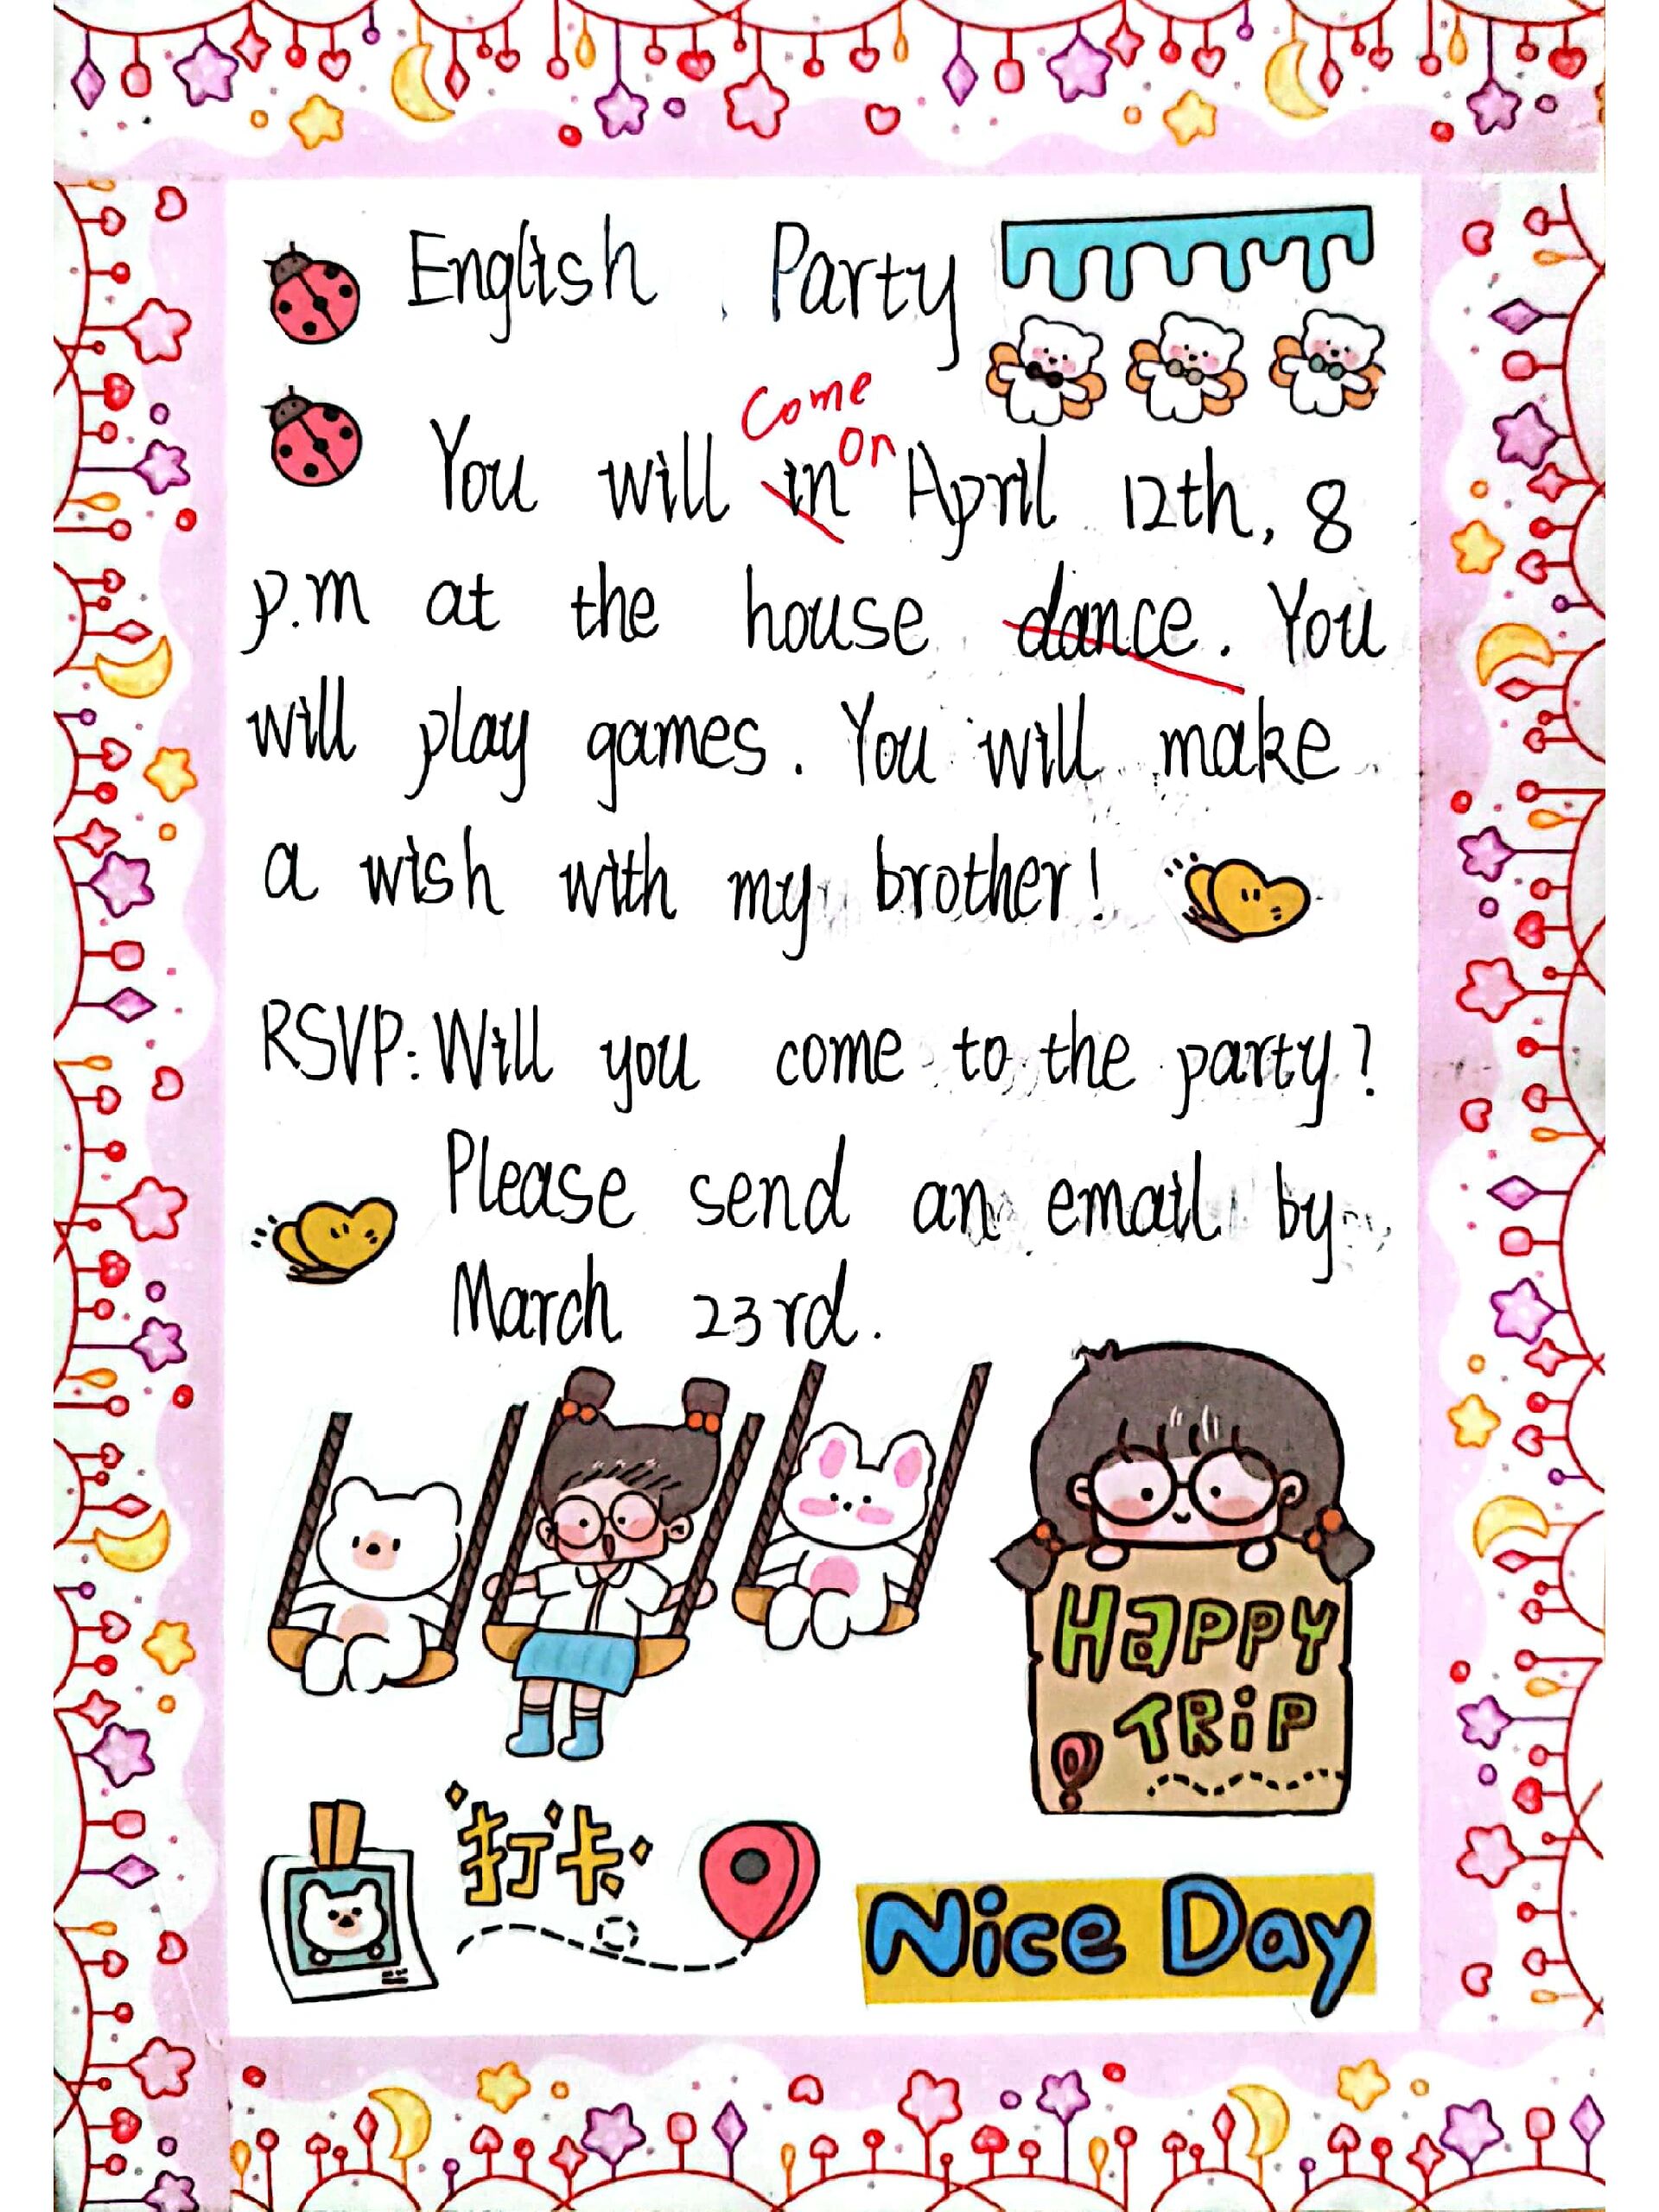 English Party
come
on
You will in April 12th, 8
p.m at the house dance. You
will play games. You will make
a wish with my brother!
RSVP: Will you come to the party?
Please send an email by
March 23rd.
HAPPY
TRIP
打卡
Nice Day